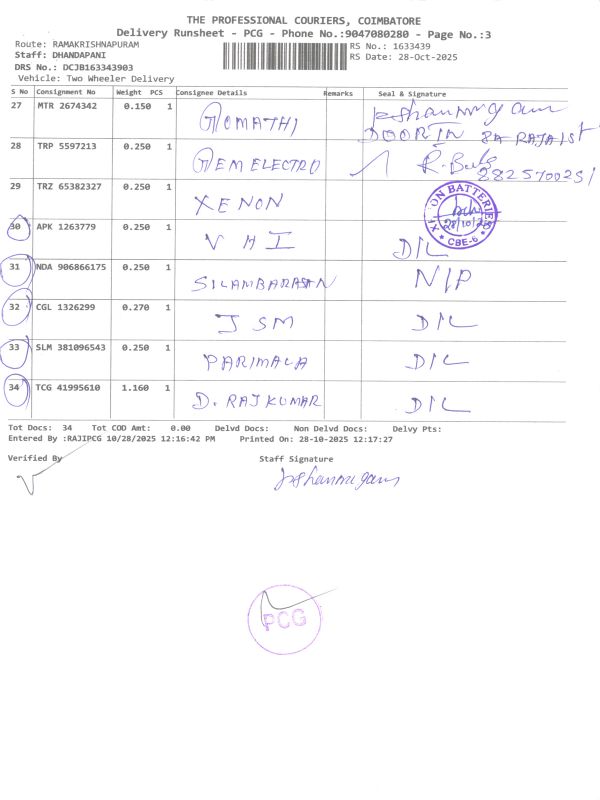 THE PROFESSIONAL COURIERS, COIMBATORE
Delivery Runsheet - PCG - Phone No.:9047080280 - Page No.:3
Route: RAMAKRISHNAPURAM RS No.: 1633439
Staff: DHANDAPANI RS Date: 28-Oct-2025
DRS No.: DCJB163343903
Vehicle: Two Wheeler Delivery
S No Consignment No Weight PCS Consignee Details Remarks Seal & Signature
27 MTR 2674342 0.150 1 GOMATHI
28 TRP 5597213 0.250 1 GEM ELECTRO
29 TRZ 65382327 0.250 1 XENON
30 APK 1263779 0.250 1 V H I D/L
31 NDA 906866175 0.250 1 SILAMBARASAN N/P
32 CGL 1326299 0.270 1 J S M D/L
33 SLM 381096543 0.250 1 PARIMALA D/L
34 TCG 41995610 1.160 1 D. RAJKUMAR D/L
Tot Docs: 34 Tot COD Amt: 0.00 Delvd Docs: Non Delvd Docs: Delvy Pts:
Entered By :RAJIPCG 10/28/2025 12:16:42 PM Printed On: 28-10-2025 12:17:27
Verified By Staff Signature
PCG